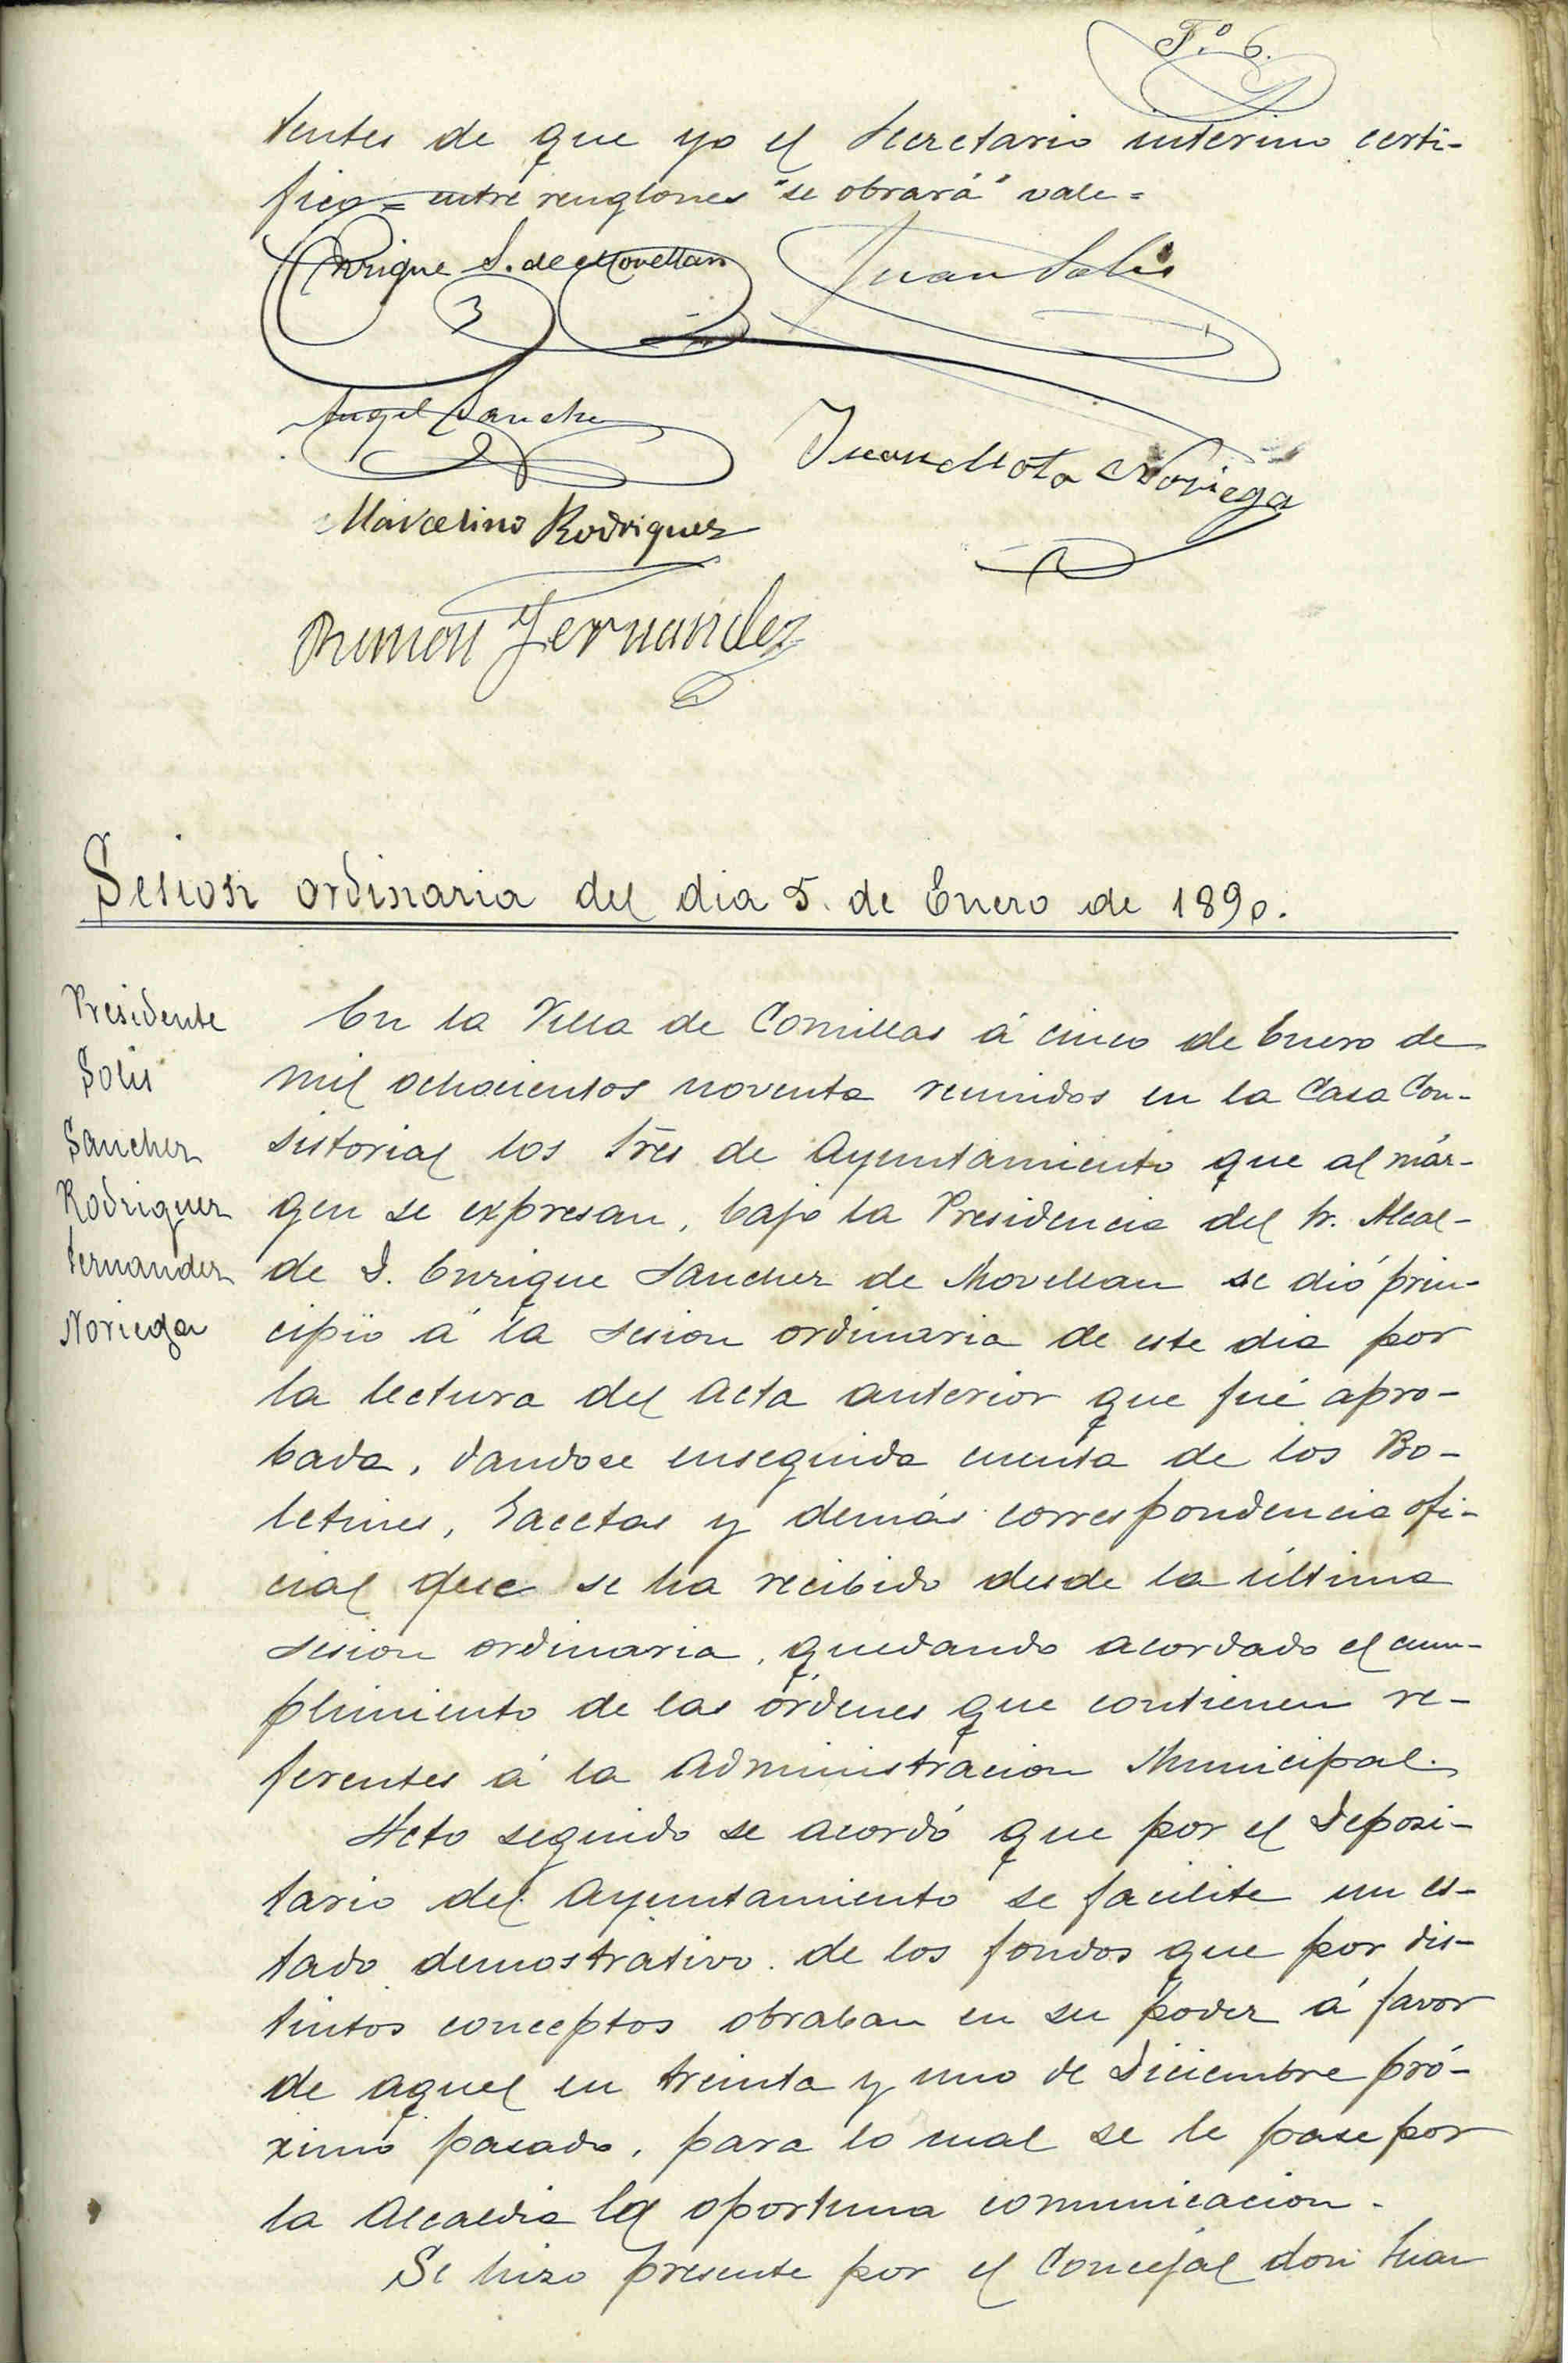 Fº 6.
tentes de que yo el Secretario interino certi-
fico = entre renglones "se obrará" vale =
Enrique S. de Movellan
Juan Solis
Angel Sanchez
Juan Mota Noriega
Marcelino Rodriguez
Ramon Fernandez
Sesion ordinaria del dia 5. de Enero de 1890.
Presidente
Solis
Sanchez
Rodriguez
Fernandez
Noriega
En la Villa de Comillas á cinco de Enero de
mil ochocientos noventa reunidos en la Casa Con-
sistorial los Sres de Ayuntamiento que al már-
gen se expresan, bajo la Presidencia del Sr. Alcal-
de D. Enrique Sanchez de Movellan se dió prin-
cipio á la sesion ordinaria de este dia por
la lectura del acta anterior que fué apro-
bada, dandose enseguida cuenta de los Bo-
letines, Gacetas y demás correspondencia ofi-
cial que se ha recibido desde la última
sesion ordinaria, quedando acordado el cum-
plimiento de las órdenes que contienen re-
ferentes á la Administracion Municipal.
Acto seguido se acordó que por el Deposi-
tario del Ayuntamiento se facilite un es-
tado demostrativo de los fondos que por dis-
tintos conceptos obraban en su poder á favor
de aquel en treinta y uno de Diciembre pró-
ximo pasado, para lo cual se le pase por
la Alcaldia la oportuna comunicacion.
Se hizo presente por el Concejal don Juan